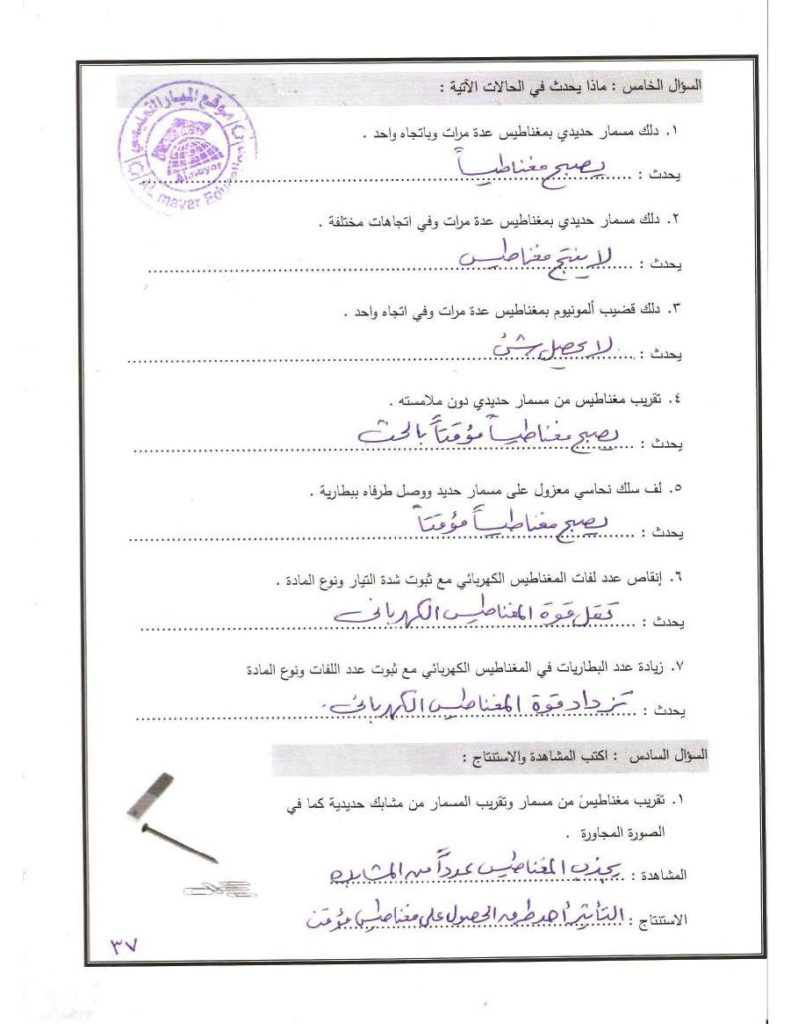 السؤال الخامس : ماذا يحدث في الحالات الآتية :
موقع الميار التعليمي
Almayar
(C) Al mayer Education
١. دلك مسمار حديدي بمغناطيس عدة مرات وباتجاه واحد .
يحدث : يصبح مغناطيساً
٢. دلك مسمار حديدي بمغناطيس عدة مرات وفي اتجاهات مختلفة .
يحدث : لا ينتج مغناطيس
٣. دلك قضيب ألمونيوم بمغناطيس عدة مرات وفي اتجاه واحد .
يحدث : لا يحصل شئ
٤. تقريب مغناطيس من مسمار حديدي دون ملامسته .
يحدث : يصبح مغناطيساً مؤقتاً بالحث
٥. لف سلك نحاسي معزول على مسمار حديد ووصل طرفاه ببطارية .
يحدث : يصبح مغناطيساً مؤقتاً
٦. إنقاص عدد لفات المغناطيس الكهربائي مع ثبوت شدة التيار ونوع المادة .
يحدث : تقل قوة المغناطيس الكهربائي
٧. زيادة عدد البطاريات في المغناطيس الكهربائي مع ثبوت عدد اللفات ونوع المادة
يحدث : تزداد قوة المغناطيس الكهربائي .
السؤال السادس : اكتب المشاهدة والاستنتاج :
١. تقريب مغناطيس من مسمار وتقريب المسمار من مشابك حديدية كما في
الصورة المجاورة .
المشاهدة : يجذب المغناطيس عدداً من المشابك
الاستنتاج : التأثير أحد طرق الحصول على مغناطيس مؤقت
٣٧